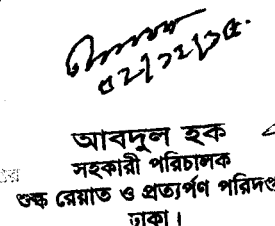 ০২/১২/১৫
আবদুল হক
সহকারী পরিচালক
শুল্ক রেয়াত ও প্রত্যর্পণ পরিদপ্তর
ঢাকা।